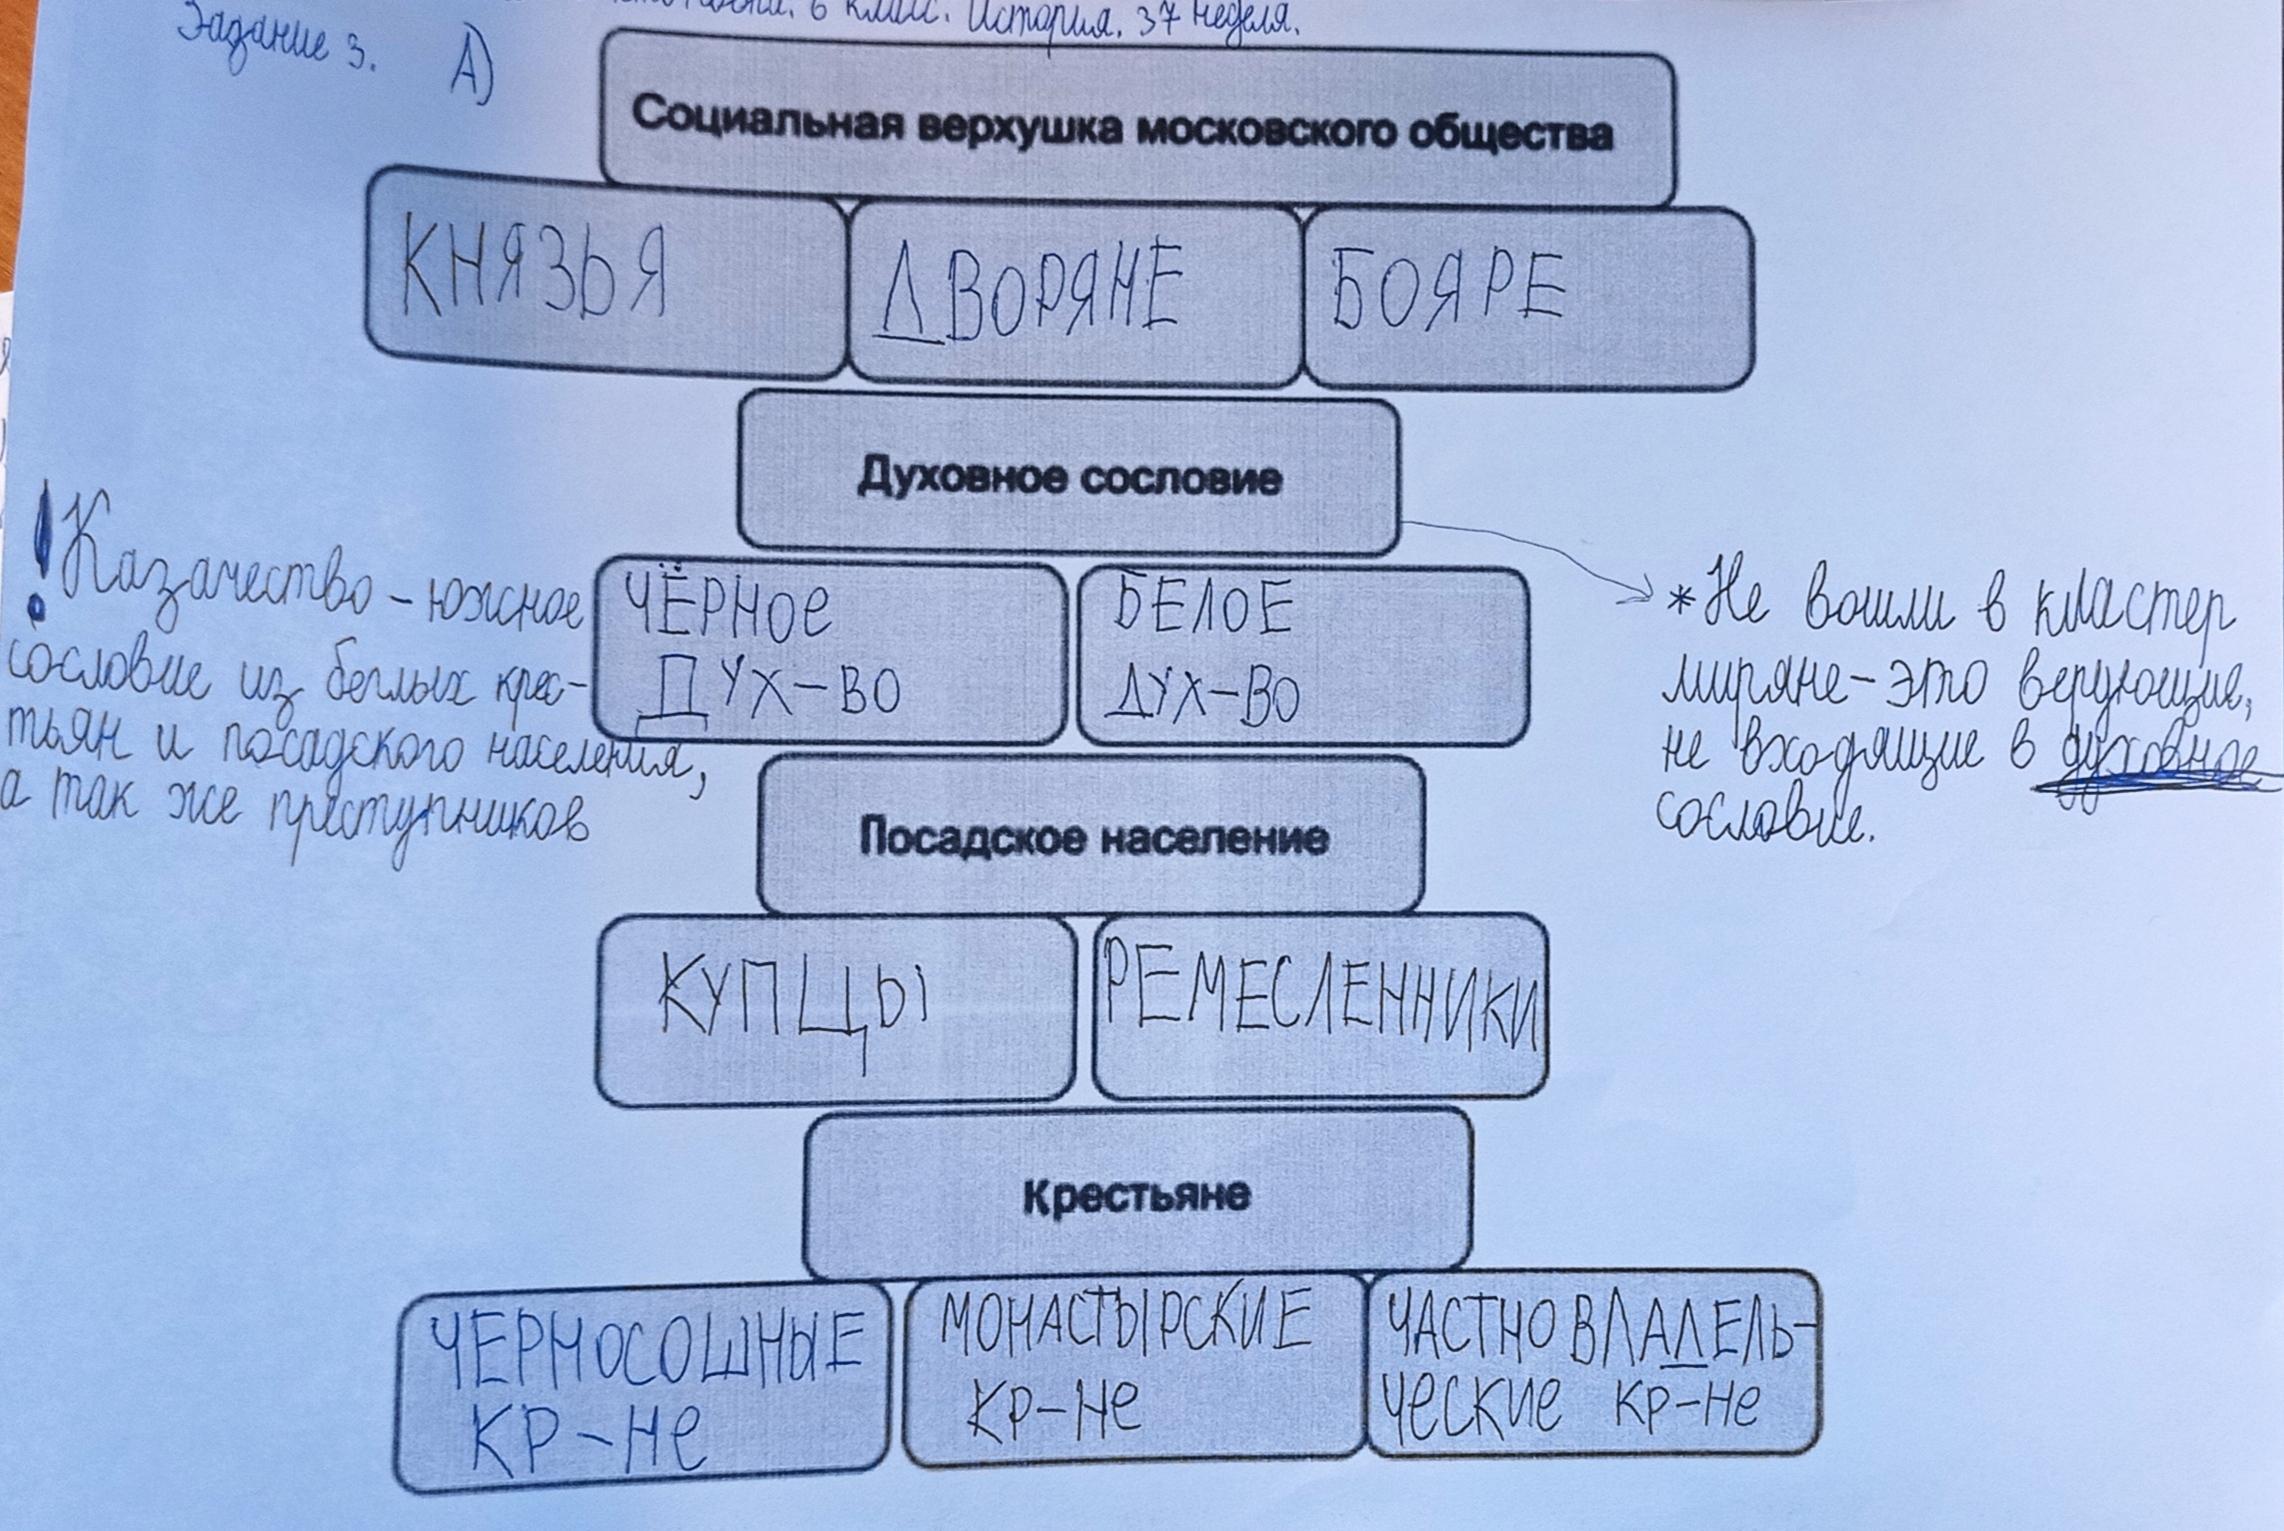 6 класс. История. 37 неделя.
Задание 3. А)
Социальная верхушка московского общества
КНЯЗЬЯ
ДВОРЯНЕ
БОЯРЕ
Духовное сословие
ЧЁРНОе
ДУХ-ВО
БЕЛОЕ
ДУХ-ВО
! Казачество - южное
сословие из беглых крес-
тьян и посадского населения,
а так же преступников
* Не вошли в кластер
миряне - это верующие,
не входящие в духовное
сословие.
Посадское население
КУПЦЫ
РЕМЕСЛЕННИКИ
Крестьяне
ЧЕРНОСОШНЫЕ
КР-Не
МОНАСТЫРСКИЕ
КР-Не
ЧАСТНОВЛАДЕЛЬ-
ЧЕСКИЕ КР-Не